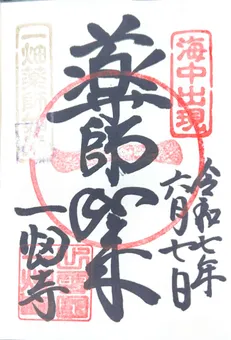 海中出現
令和七年
六月七日
薬師如来
一畑薬師
一畑寺